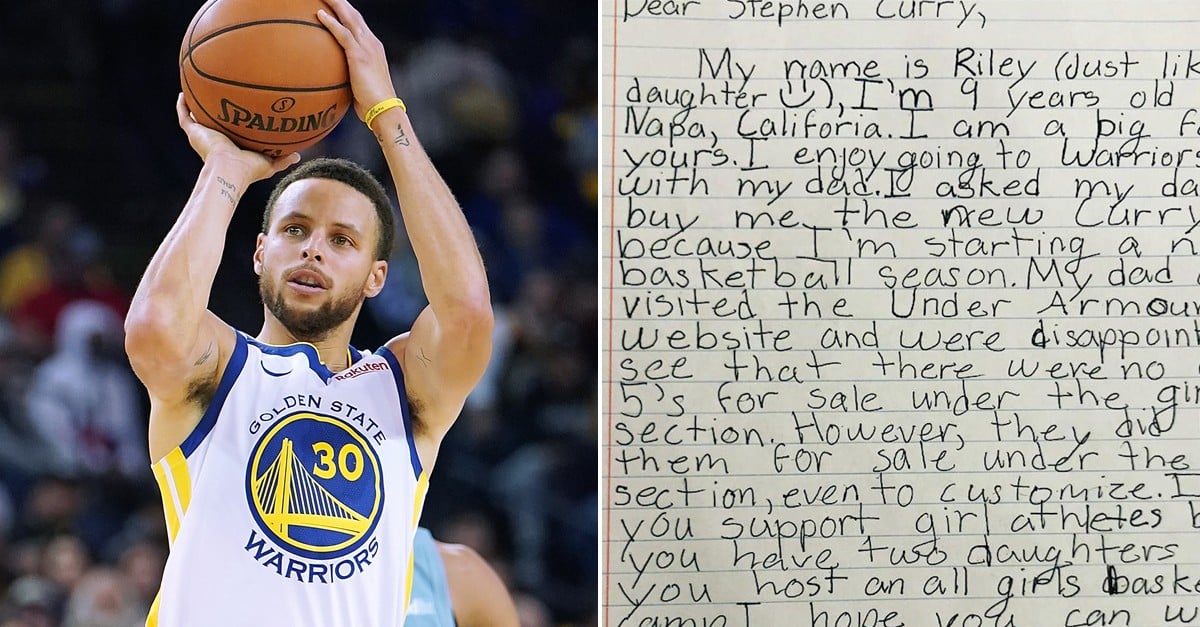 SPALDING
Rakuten
GOLDEN STATE
30
WARRIORS
Dear Stephen Curry,
My name is Riley (Just lik
daughter ), I'm 9 years old
Napa, Califoria. I am a big f
yours. I enjoy going to Warriors
with my dad. I asked my da
buy me the new Curry
because I'm starting a n
basketball season. My dad
visited the Under Armou
website and were disappoin
see that there were no
5's for sale under the gir
section. However, they did
them for sale under the
section, even to customize. I
you support girl athletes
you have two daughters
you host an all girls baske
camp. I hope you can w